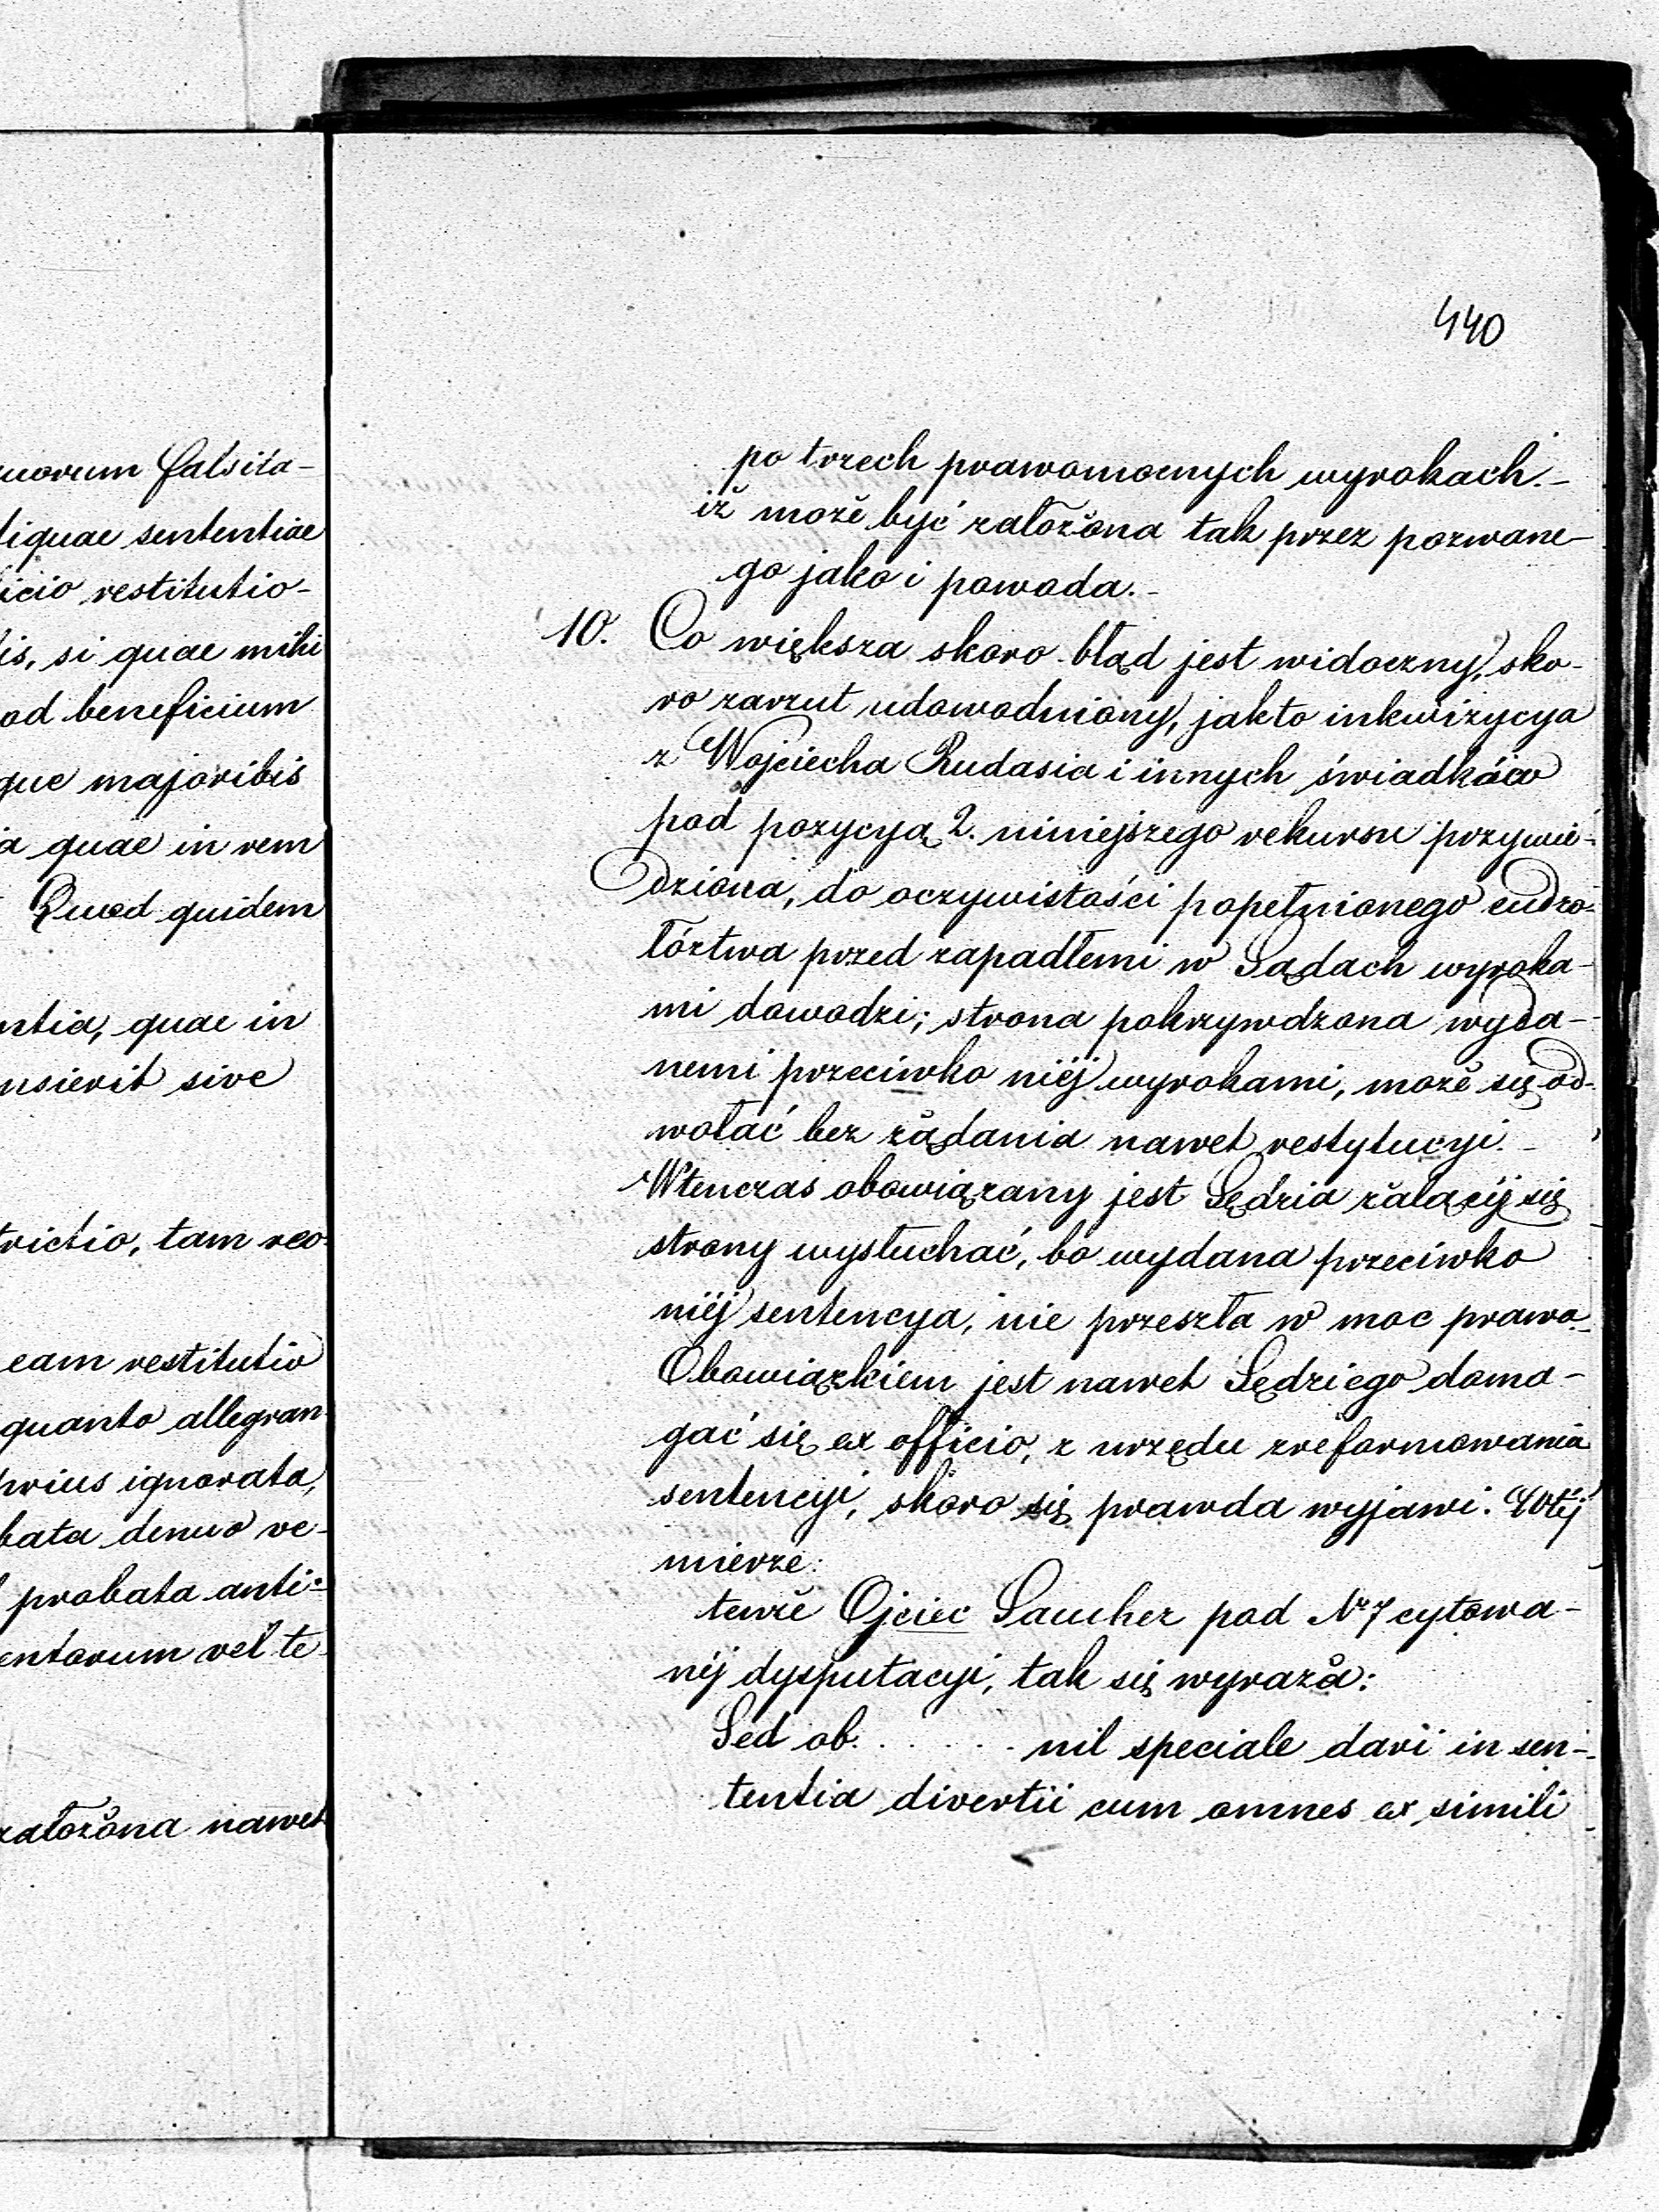 uorum falsita-
liquae sententiae
icio restitutio-
is, si quae mihi
od beneficium
que majoribis
a quae in rem
Quod quidem
ntia, quae in
nsierit sive
trictio, tam reo
eam restitutio
quanto allegran
prius ignorata,
bata denuo re-
probata anti-
entorum vel te-
założona nawet
440
po trzech prawomocnych wyrokach.-
iż może być założona tak przez pozwane-
go jako i powoda.-
10. Co większa skoro błąd jest widoczny, sko-
ro zarzut udowodniony, jak to inkwizycya
z Wojciecha Rudasia i innych świadków
pod pozycyą 2. niniejszego rekursu przywie-
dziona, do oczywistości popełnionego cudzo-
łóztwa przed zapadłemi w Sądach wyroka-
mi dowodzi; strona pokrzywdzona wyda-
nemi przeciwko niéj wyrokami, może się od-
wołać bez żądania nawet restytucyi.-
Wtenczas obowiązany jest Sędzia żalącéj się
strony wysłuchać, bo wydana przeciwko
niéj sentencya, nie przeszła w moc prawa.
Obowiązkiem jest nawet Sędziego doma-
gać się ex officio, z urzędu zreformowania
sentencyi, skoro się prawda wyjawi. W téj
mierze:
tenże Ojciec Sanchez pod Nr 7 cytowa-
néj dysputacyi, tak się wyraża:
Sed ob. . . . . . nil speciale dari in sen-
tentia divertii cum omnes ex simili